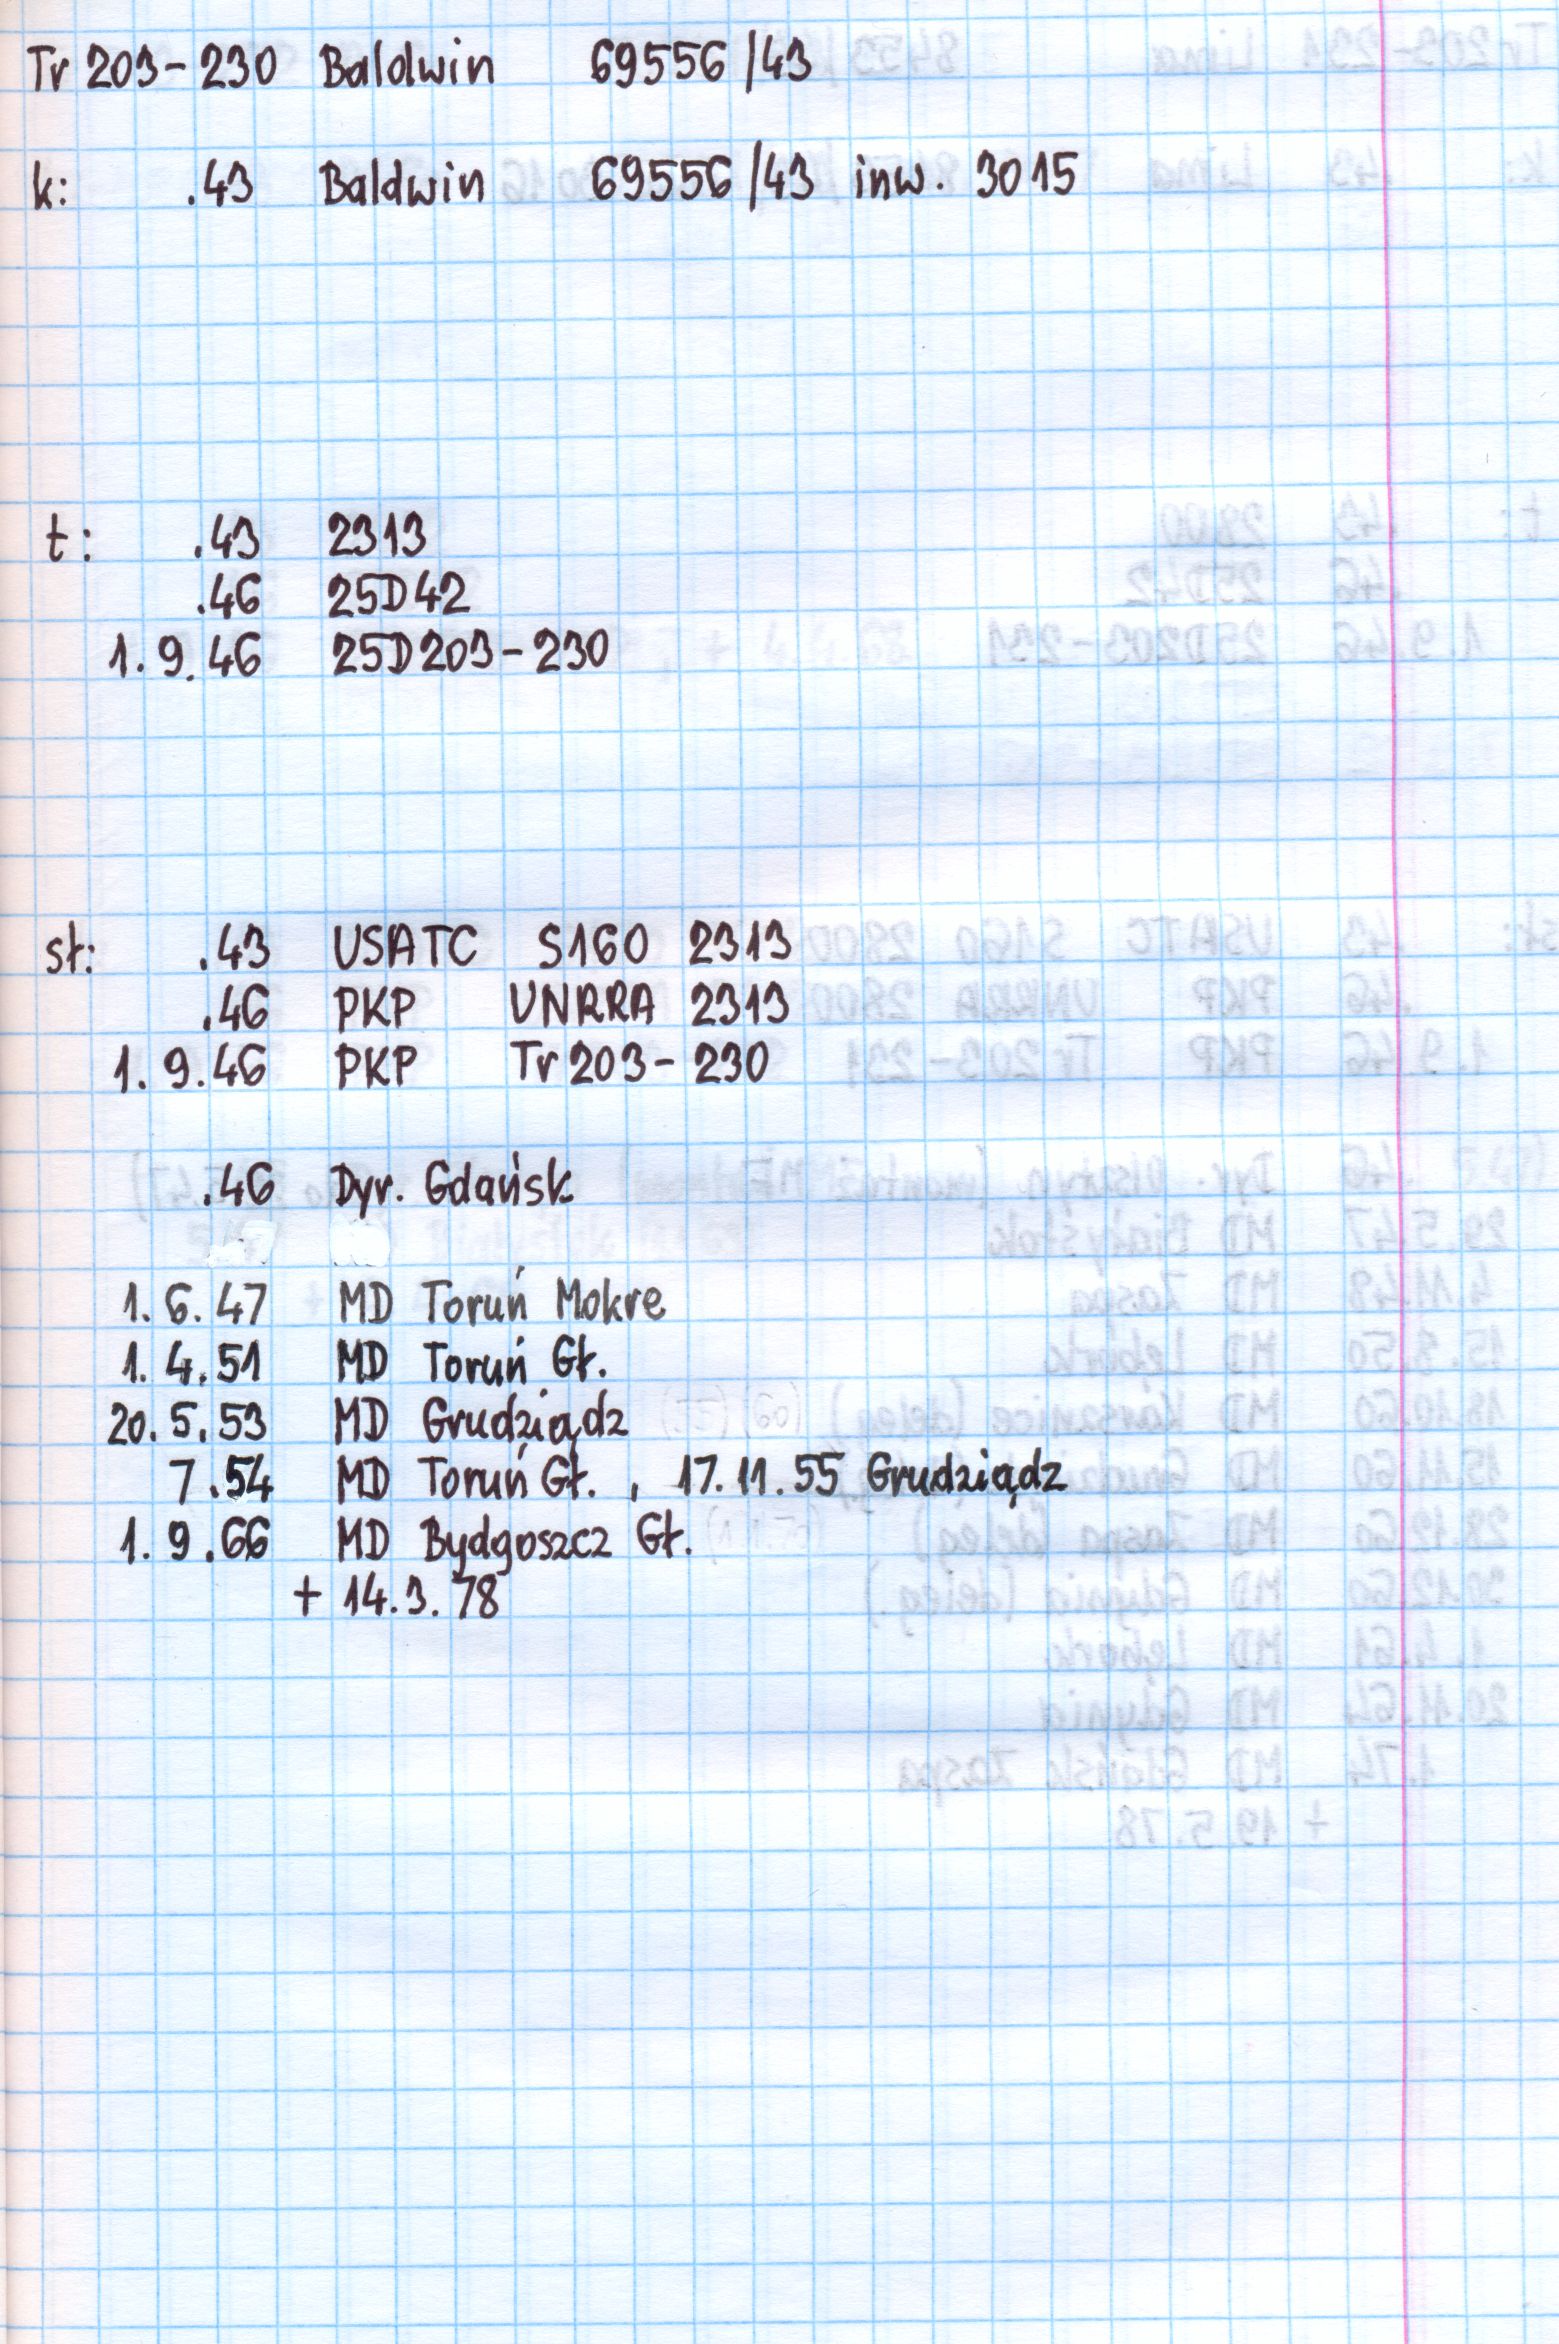 Tr 203-230 Baldwin 69556/43
k: .43 Baldwin 69556/43 inw. 3015
t: .43 2313
.46 25D42
1.9.46 25D203-230
sł: .43 USATC S160 2313
.46 PKP UNRRA 2313
1.9.46 PKP Tr 203-230
.46 Dyr. Gdańsk
1.6.47 MD Toruń Mokre
1.4.51 MD Toruń Gł.
20.5.53 MD Grudziądz
7.54 MD Toruń Gł. , 17.11.55 Grudziądz
1.9.66 MD Bydgoszcz Gł.
+ 14.3.78